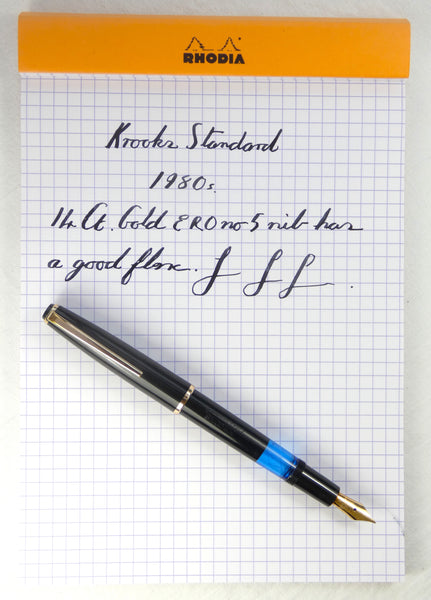 RHODIA
Krooks Standard
1980s.
14 Ct. Gold ERO no 5 nib has
a good flex. f f f .